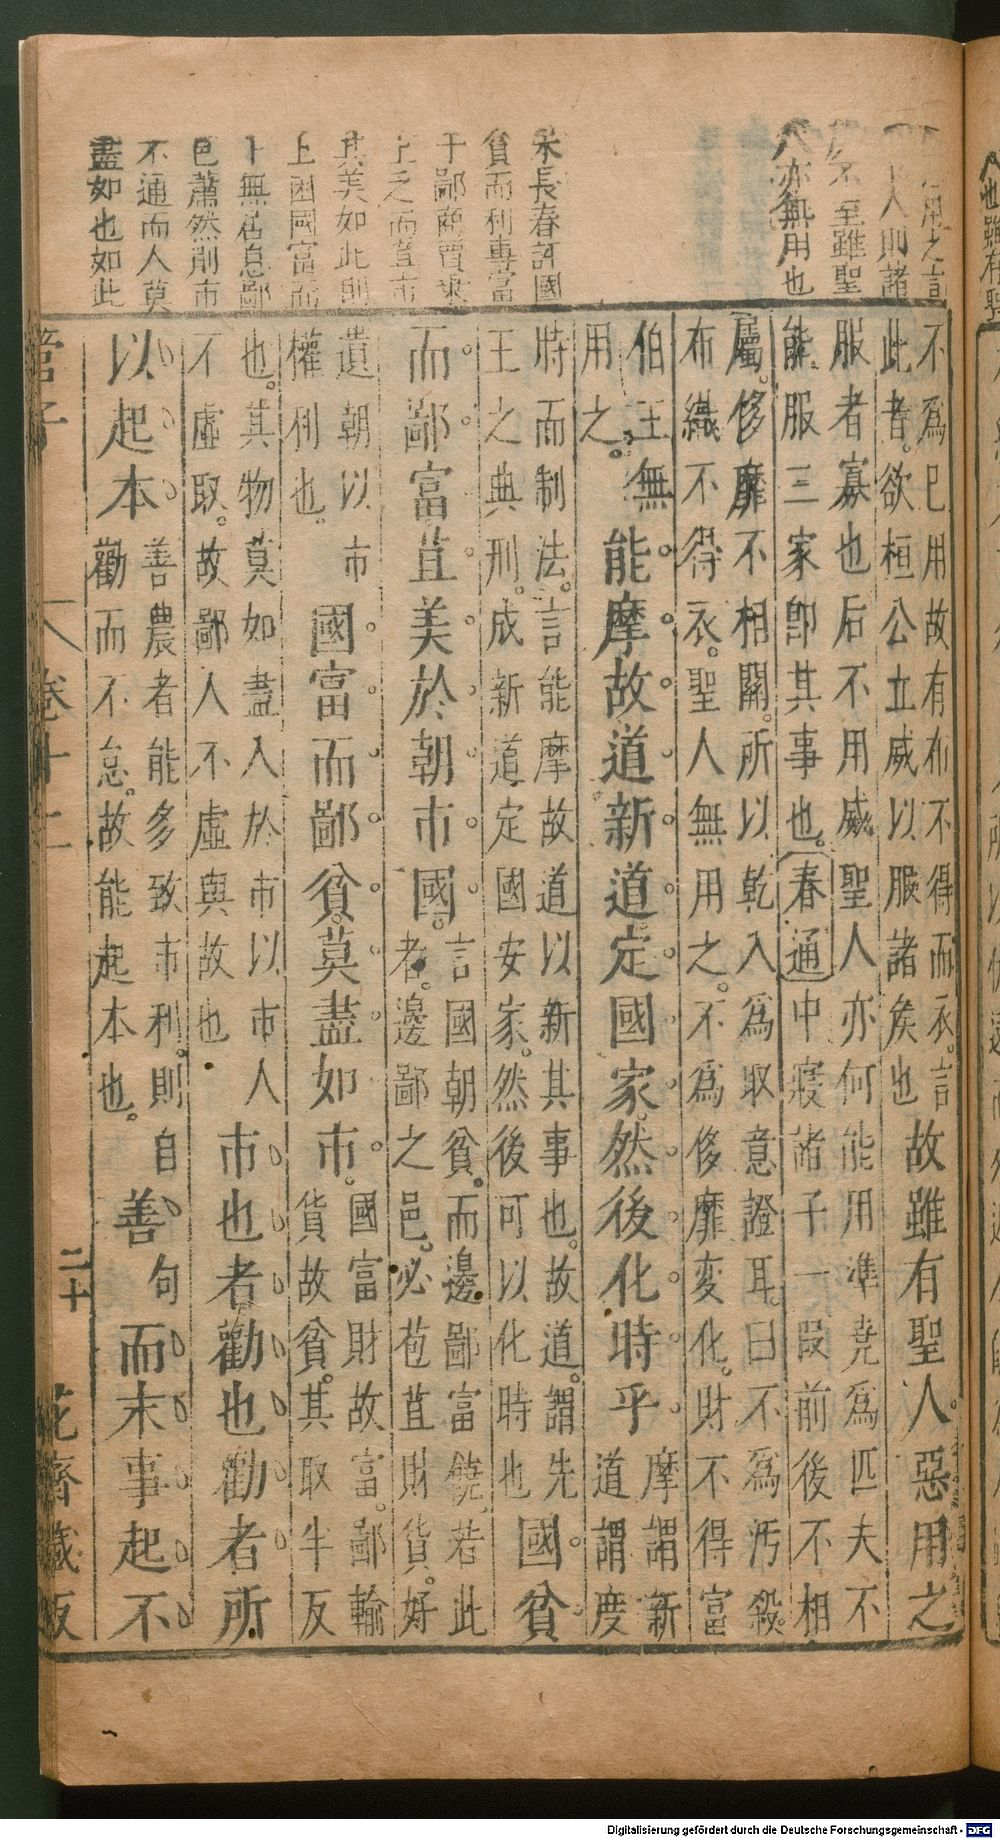 用之言
人則諸
至雖聖
人亦無用也
朱長春評國
貧而利專富
于鄙商賈來
上乏而苴市
其美如此則
上困國富而
下無居怠鄙
邑蕭然削市
不通而人莫
盡如也如此
不爲己用故有布不得而衣。言
此者。欲桓公立威以服諸侯也
故雖有聖人惡用之
服者寡也后不用威聖人亦何能用準堯爲匹夫不
能服三家卽其事也。春通中寢諸子一段前後不相
屬。侈靡不相關。所以乾入爲取意證耳。曰不爲汚殺
布織不得衣。聖人無用之。不爲侈靡変化。財不得富
伯王無
用之。
能摩故道新道定國家。然後化時乎
摩謂新
道謂度
時而制法。言能摩故道以新其事也。故道。謂先
王之典刑。成新道定國安家。然後可以化時也
國貧
而鄙富苴美於朝市國。
言國朝貧。而邊鄙富饒。若此
者。邊鄙之邑。必苞苴財貨。好
遺朝以市
權利也。
國富而鄙貧。莫盡如市。
國富財故富。鄙輸
貨故貧。其取牛反
也。其物莫如盡入於市以市人
不虛取。故鄙人不虛與故也
市也者勸也勸者所
以起本
善農者能多致市利。則自
勸而不怠。故能起本也。
善句而末事起不
管子
卷十二
二十
花齋藏板
Digitalisierung gefördert durch die Deutsche Forschungsgemeinschaft - DFG